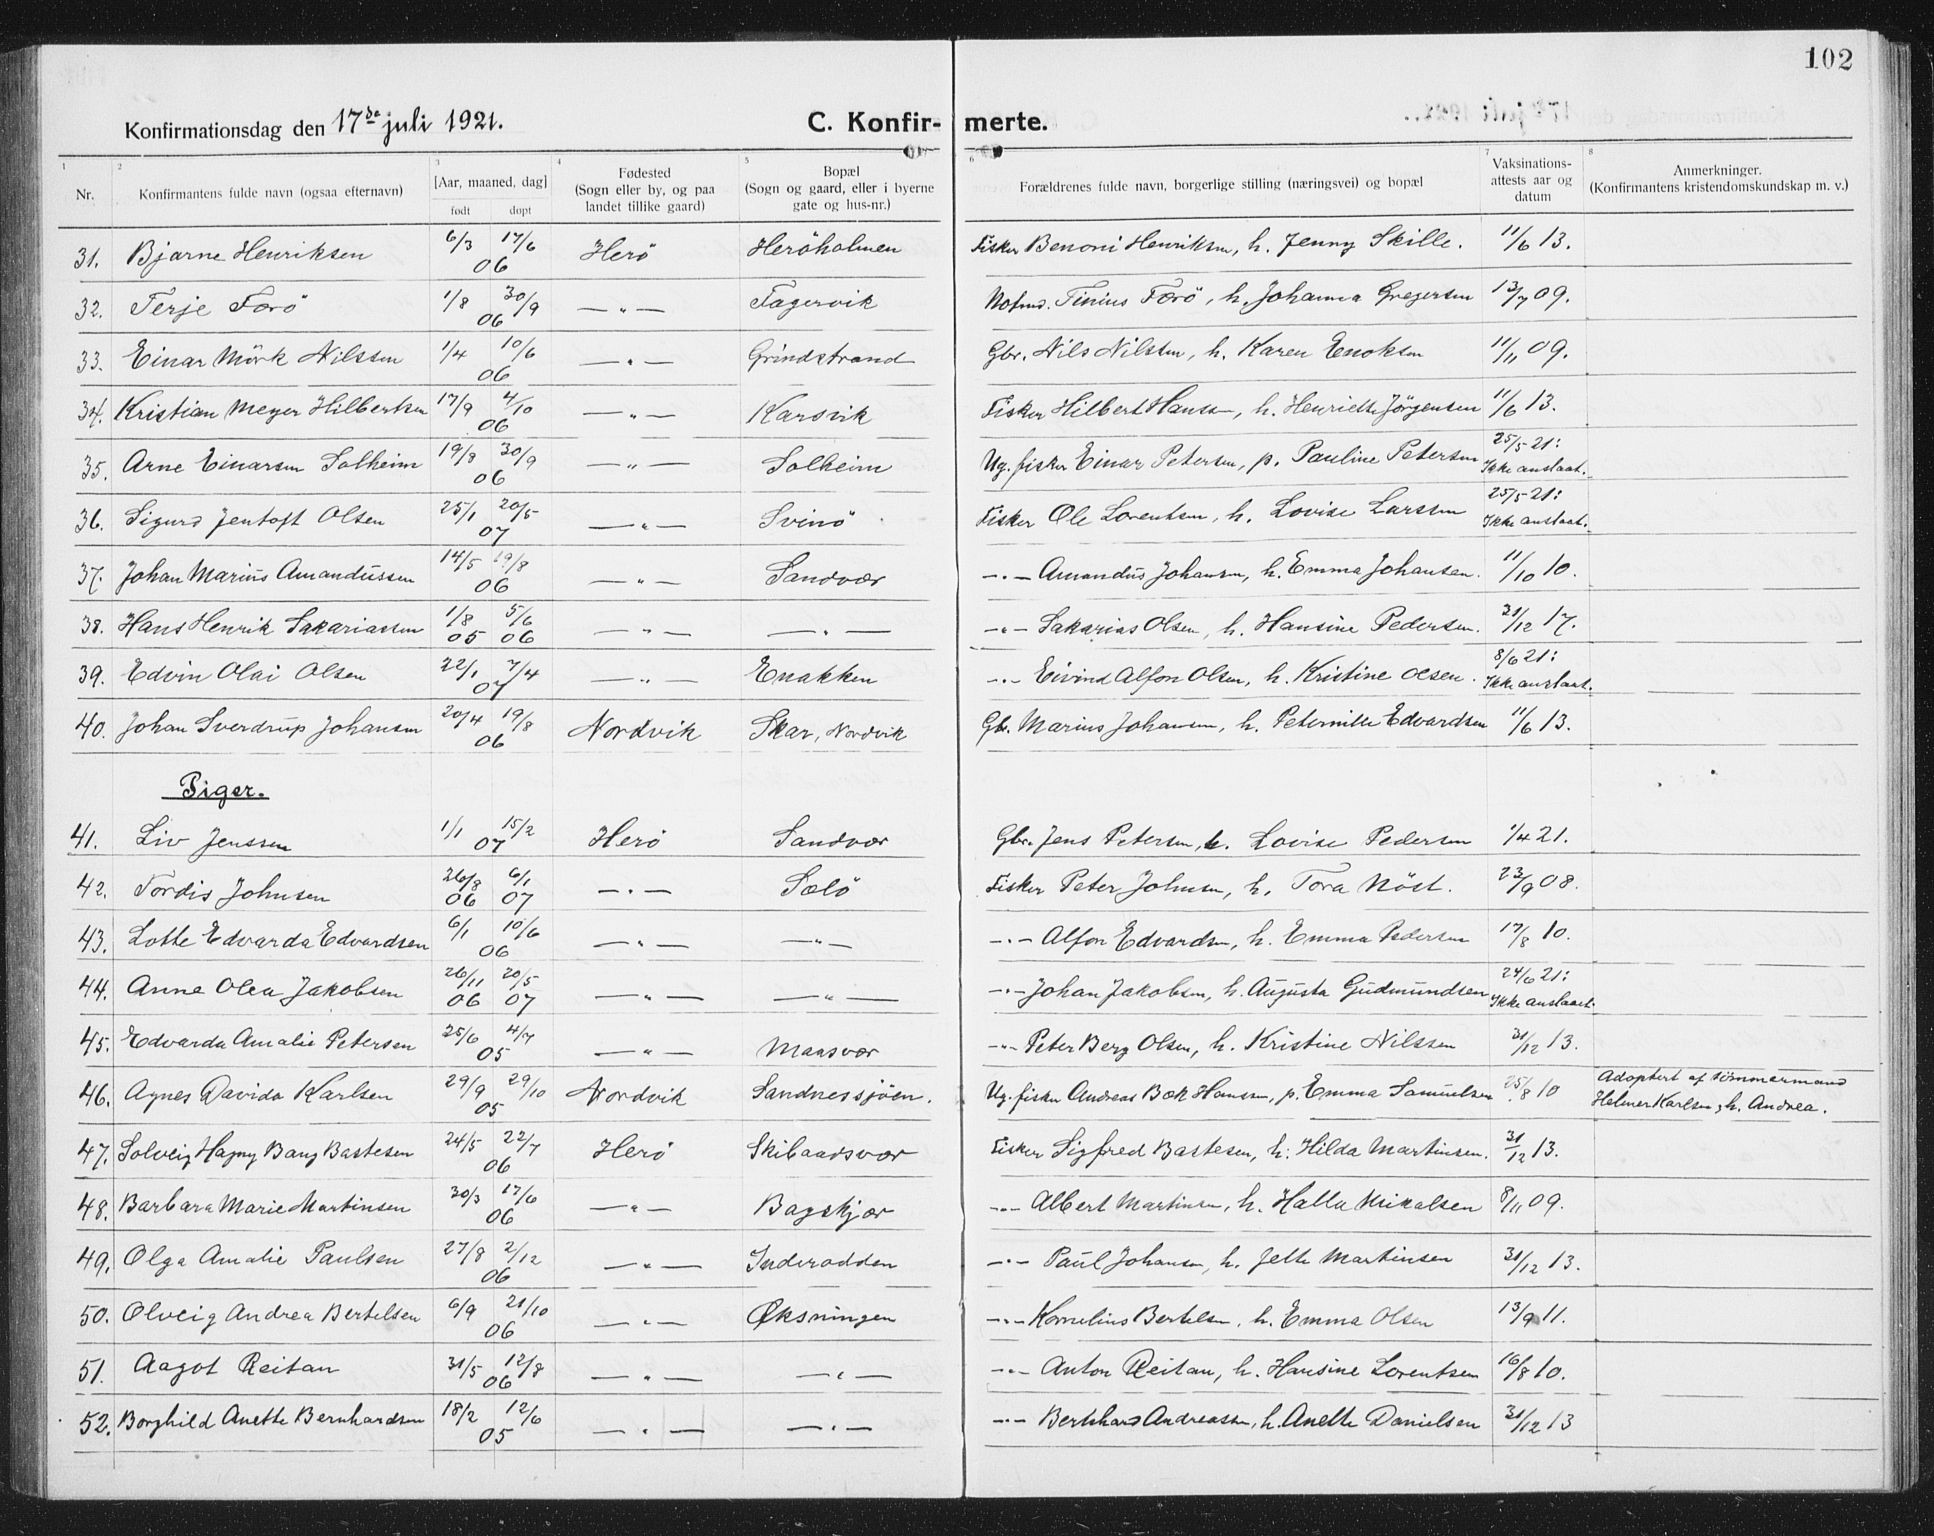 102
Konfirmationsdag den 17de juli 1921. C. Konfir- merte.
1 2 3 4 5 6 7 8
Nr. Konfirmantens fulde navn (ogsaa efternavn) [Aar, maaned, dag] født døpt Fødested (Sogn eller by, og paa landet tillike gaard) Bopæl (Sogn og gaard, eller i byerne gate og hus-nr.) Forældrenes fulde navn, borgerlige stilling (næringsvei) og bopæl Vaksinations-attests aar og datum Anmerkninger. (Konfirmantens kristendomskundskap m. v.)
31. Bjarne Henriksen 6/3 17/6 06 Herö Heröholmen Fisker Benoni Henriksen, h. Jenny Skille. 11/6 13.
32. Terje Færö 1/8 30/9 06 —„— Fagervik Tinius Færö, h. Johanna Gregersen 13/7 09.
33. Einar Mörk Nilssen 1/4 10/6 06 —„— Grindstrand Gbr. Nils Nilssen, h. Karen Enoksen 11/11 09.
34. Kristian Meyer Hilbertsen 17/9 4/10 06 —„— Karsvik Fisker Hilbert Hansen, h. Henriette Jörgensen 11/6 13.
35. Arne Einarsen Solheim 19/8 30/9 06 —„— Solheim Ug. fisker Einar Petersen, p. Pauline Petersen 25/5 21: Ikke anslaat.
36. Sigurd Jentoft Olsen 25/1 20/5 07 —„— Svinö Fisker Ole Lorentsen, h. Lovise Larssen 25/5 21: Ikke anslaat.
37. Johan Marius Amandussen 14/5 19/8 06 —„— Sandvær —„— Amandus Johansen, h. Emma Johansen. 11/10 10.
38. Hans Henrik Sakariassen 1/8 05 5/6 06 —„— —„— —„— Sakarias Olsen, h. Hansine Pedersen. 31/12 17.
39. Edvin Olai Olsen 22/1 7/4 07 —„— Enakken —„— Eivind Alfon Olsen, h. Kristine Olsen. 8/6 21: Ikke anslaat.
40. Johan Sverdrup Johansen 20/4 19/8 06 Nordvik Skar, Nordvik Gbr. Marius Johansen, h. Peternille Edvardsen 11/6 13.
Piger.
41. Liv Jenssen 1/1 15/2 07 Herö Sandvær Gbr. Jens Petersen, h. Lovise Pedersen 1/4 21.
42. Tordis Johnsen 26/8 06 6/1 07 —„— Sælö Fisker Peter Johnsen, h. Tora Nöst. 23/9 08.
43. Lotte Edvarda Edvardsen 6/1 10/6 06 —„— —„— —„— Alfon Edvardsen, h. Emma Pedersen 17/8 10.
44. Anne Olea Jakobsen 26/11 06 20/5 07 —„— —„— —„— Johan Jakobsen, h. Augusta Gudmundsen 24/6 21: Ikke anslaaet.
45. Edvarda Amalie Petersen 25/6 4/7 05 —„— Maasvær —„— Peter Berg Olsen, h. Kristine Nilssen 31/12 13.
46. Agnes Davida Karlsen 29/9 29/10 05 Nordvik Sandnessjöen. Ug. fisker Andreas Bæk Hanssen, p. Emma Samuelsen 25/8 10 Adoptert af tömmermand Helmer Karlsen, h. Andrea.
47. Solveig Hagny Bang Bastesen 24/5 22/7 06 Herö Skibaadsvær Fisker Sigfred Bastesen, h. Hilda Martinsen. 31/12 13.
48. Barbara Marie Martinsen 30/3 17/6 06 —„— Bagskjær —„— Albert Martinsen, h. Halla Mikalsen 8/11 09.
49. Olga Amalie Paulsen 27/8 2/12 06 —„— Inderodden —„— Paul Johansen, h. Jette Martinsen 31/12 13.
50. Olveig Andrea Bertelsen 6/9 21/10 06 —„— Øksningen —„— Kornelius Bertelsen, h. Emma Olsen 13/9 11.
51. Aagot Reitan 31/5 12/8 06 —„— —„— —„— Anton Reitan, h. Hansine Lorentsen 16/8 10.
52. Borghild Anette Bernhardsen 18/2 12/6 05 —„— —„— —„— Bernhard Andreassen, h. Anette Danielsen 31/12 13